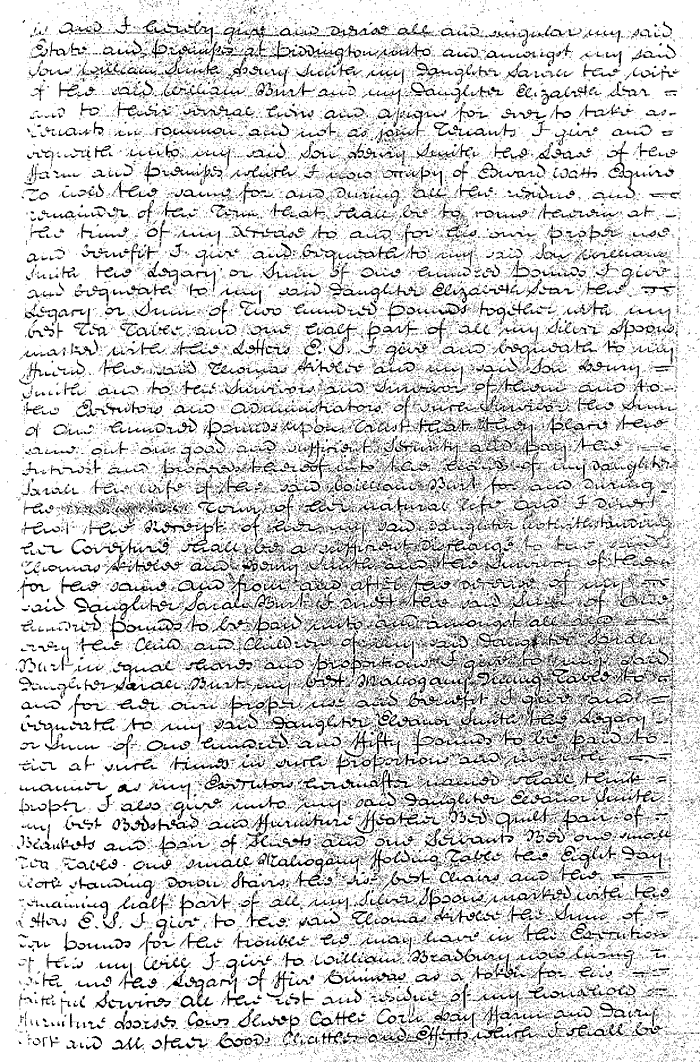 is And I hereby give and devise all and singular my said
Estate and Premises at Piddington unto and amongst my said
Sons William Smith Henry Smith my Daughter Sarah the wife
of the said William Burt and my Daughter Elizabeth Sear
and to their several heirs and assigns for ever to take as
Tenants in common and not as joint Tenants I give and
bequeath unto my said Son Henry Smith the Lease of the
Farm and Premises which I now occupy of Edward Watts Esquire
To hold the same for and during all the residue and
remainder of the Term that shall be to come therein at
the time of my decease to and for his own proper use
and benefit I give and bequeath to my said Son William
Smith the Legacy or Sum of One hundred Pounds I give
and bequeath to my said Daughter Elizabeth Sear the
Legacy or Sum of Two hundred Pounds together with my
best Tea Table and one half part of all my Silver Spoons
marked with the Letters E. S. I give and bequeath to my
Friend the said Thomas and my said Son Henry
Smith and to the Survivors and Survivor of them and to
the Executors and Administrators of such Survivor the Sum
of One hundred Pounds upon Trust that they place the
same out on good and sufficient Security and pay the
Interest and proceeds thereof into the hands of my Daughter
Sarah the wife of the said William Burt for and during
the Term of her natural life And I direct
that the Receipt of her my said Daughter notwithstanding
her Coverture shall be a sufficient discharge to the said
Thomas and Henry Smith and the Survivor of them
for the same And from and after the decease of my
said Daughter Sarah Burt I direct the said Sum of One
hundred Pounds to be paid unto and amongst all and
every the Child and Children of my said Daughter Sarah
Burt in equal shares and proportions I give to my said
Daughter Sarah Burt my best Mahogany Dining Table to
and for her own proper use and benefit I give and
bequeath to my said Daughter Eleanor Smith the Legacy
or Sum of One hundred and Fifty Pounds to be paid to
her at such times in such proportions and in such
manner as my Executors hereinafter named shall think
proper I also give unto my said Daughter Eleanor Smith
my best Bedstead and Furniture Feather Bed Quilt pair of
Blankets and pair of Sheets and one Servants Bed one small
Tea Table one small Mahogany Folding Table the Eight Day
Clock standing down Stairs the six best Chairs and the
remaining half part of all my Silver Spoons marked with the
Letters E. S. I give to the said Thomas the Sum of
Ten Pounds for the trouble he may have in the Execution
of this my Will I give to William Bradbury now living
with me the Legacy of Five Guineas as a token for his
faithful Services all the rest and residue of my household
Furniture Horses Cows Sheep Cattle Corn Hay Farm and Dairy
Stock and all other Goods Chattles and Effects which I shall be